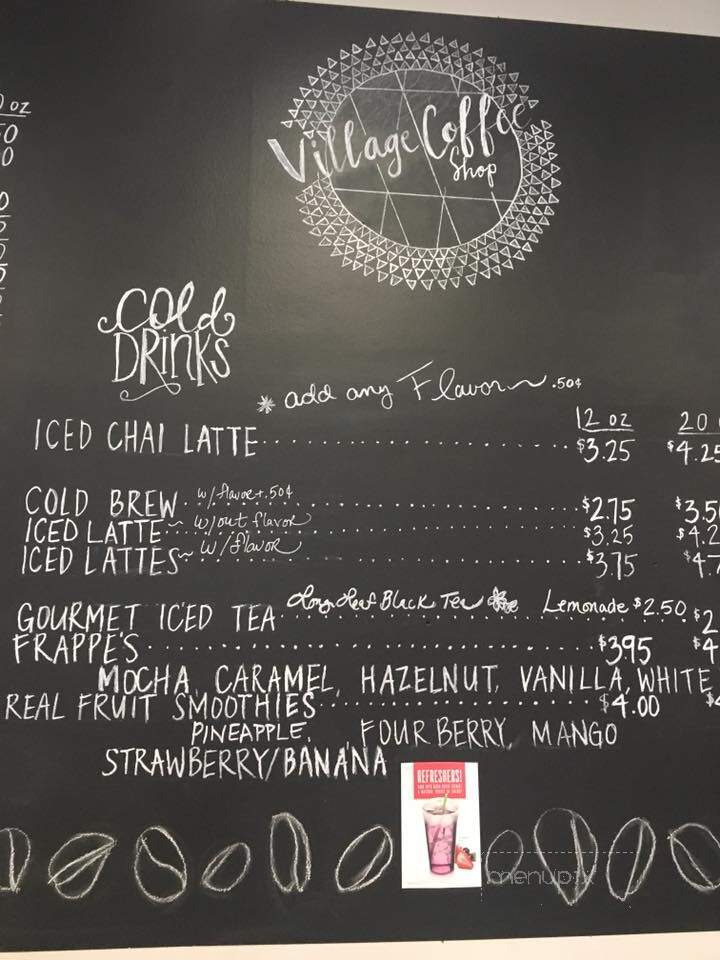 Village Coffee
Shop
Cold
DRINKS
* add any Flavor .50¢
12 oz 20
ICED CHAI LATTE $3.25 $4.25
COLD BREW w/ flavor +.50¢ $2.75 $3.5
ICED LATTE ~ w/out flavor $3.25 $4.2
ICED LATTES ~ w/ flavor $3.75 $4.7
GOURMET ICED TEA Long Leaf Black Tea Lemonade $2.50 $2
FRAPPE'S $3.95 $4
MOCHA, CARAMEL, HAZELNUT, VANILLA, WHITE
REAL FRUIT SMOOTHIES $4.00
PINEAPPLE, FOUR BERRY, MANGO
STRAWBERRY/BANANA
REFRESHERS!
menupix